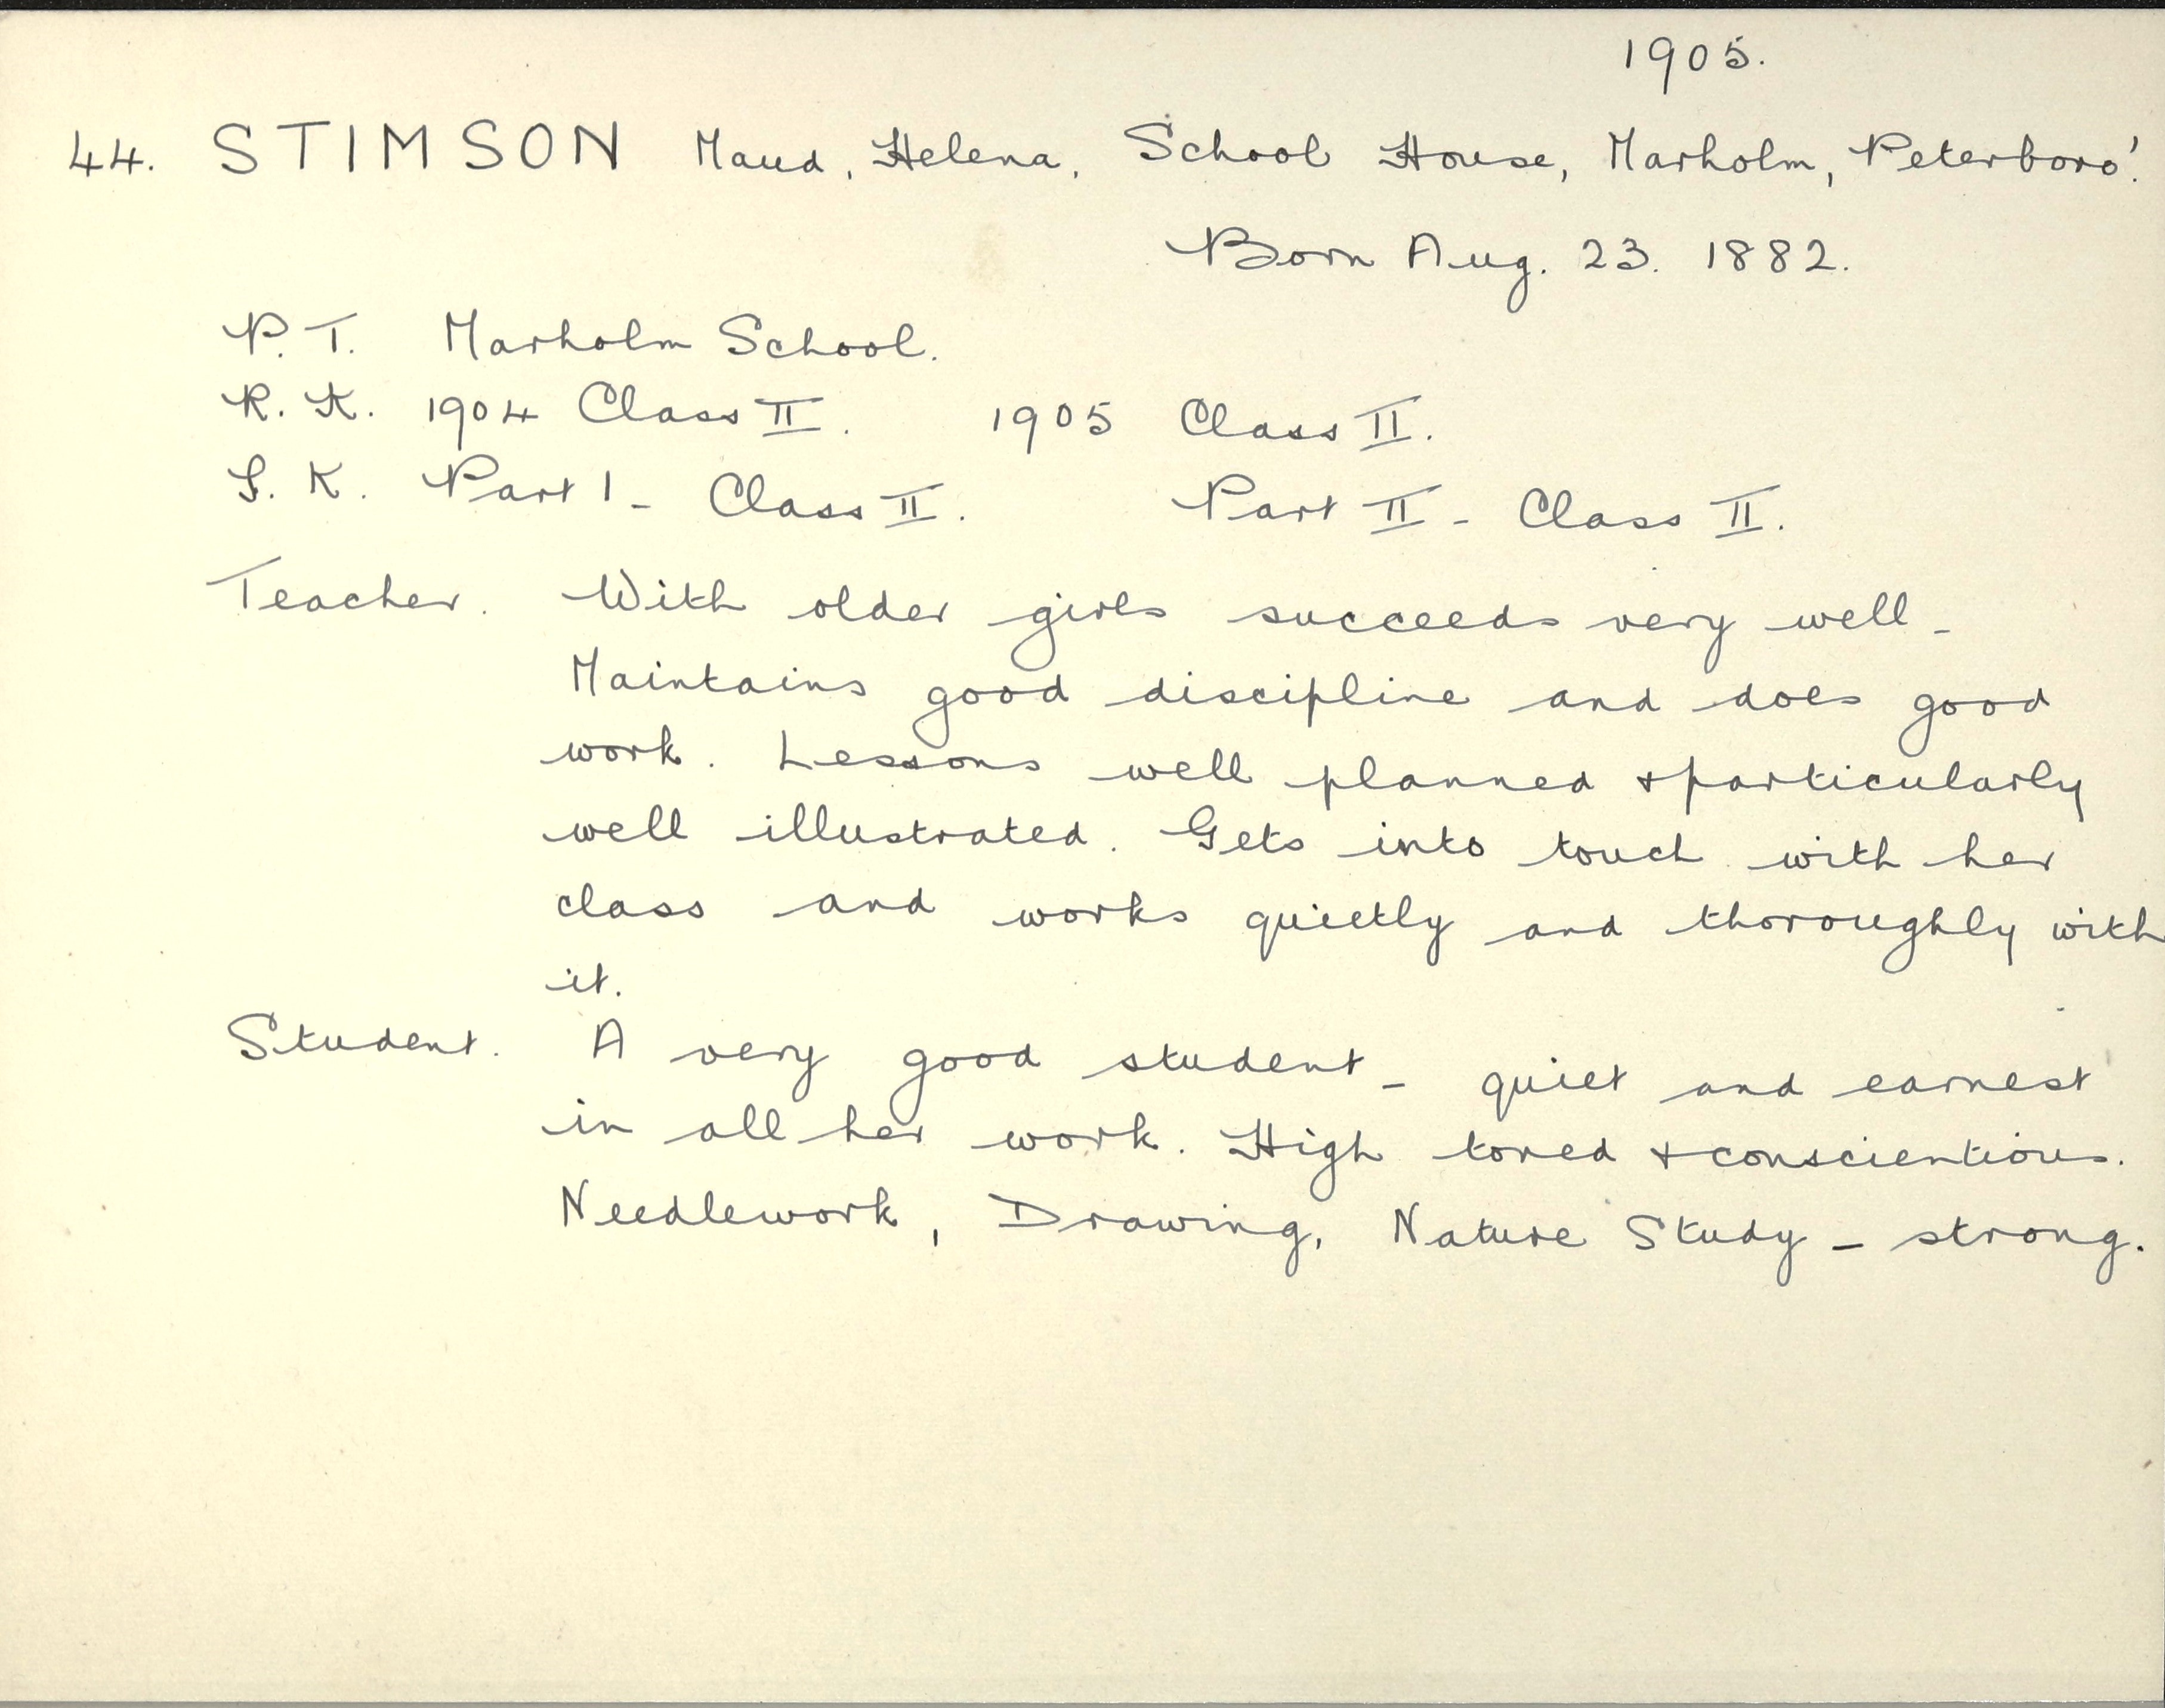 1905.
44. STIMSON Maud, Helena, School House, Marholm, Peterboro'.
Born Aug. 23. 1882.
P. T. Marholm School.
R. K. 1904 Class II. 1905 Class II.
S. K. Part I - Class II. Part II - Class II.
Teacher. With older girls succeeds very well -
Maintains good discipline and does good
work. Lessons well planned & particularly
well illustrated. Gets into touch with her
class and works quietly and thoroughly with
it.
Student. A very good student - quiet and earnest
in all her work. High toned & conscientious.
Needlework, Drawing, Nature Study - strong.